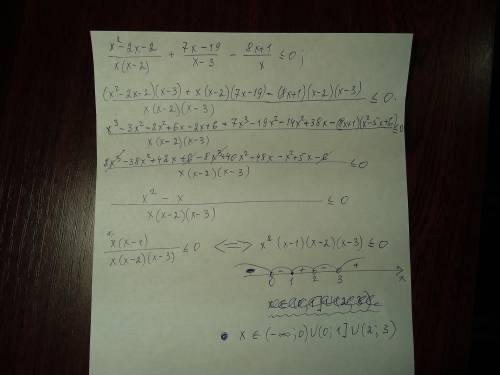 (x²-2x-2)/(x(x-2)) + (7x-19)/(x-3) - (8x+1)/x ≤ 0;
((x²-2x-2)(x-3) + x(x-2)(7x-19) - (8x+1)(x-2)(x-3))/(x(x-2)(x-3)) ≤ 0.
(x³-3x²-2x²+6x-2x+6+7x³-19x²-14x²+38x-(8x+1)(x²-5x+6))/(x(x-2)(x-3)) ≤ 0
(8x³-38x²+42x+6-8x³+40x²-48x-x²+5x-6)/(x(x-2)(x-3)) ≤ 0
(x²-x)/(x(x-2)(x-3)) ≤ 0
(x(x-1))/(x(x-2)(x-3)) ≤ 0 <=> x²(x-1)(x-2)(x-3) ≤ 0
- - + - +
0 1 2 3 x
x ∈ (-∞; 0) ∪ (0; 1] ∪ (2; 3)